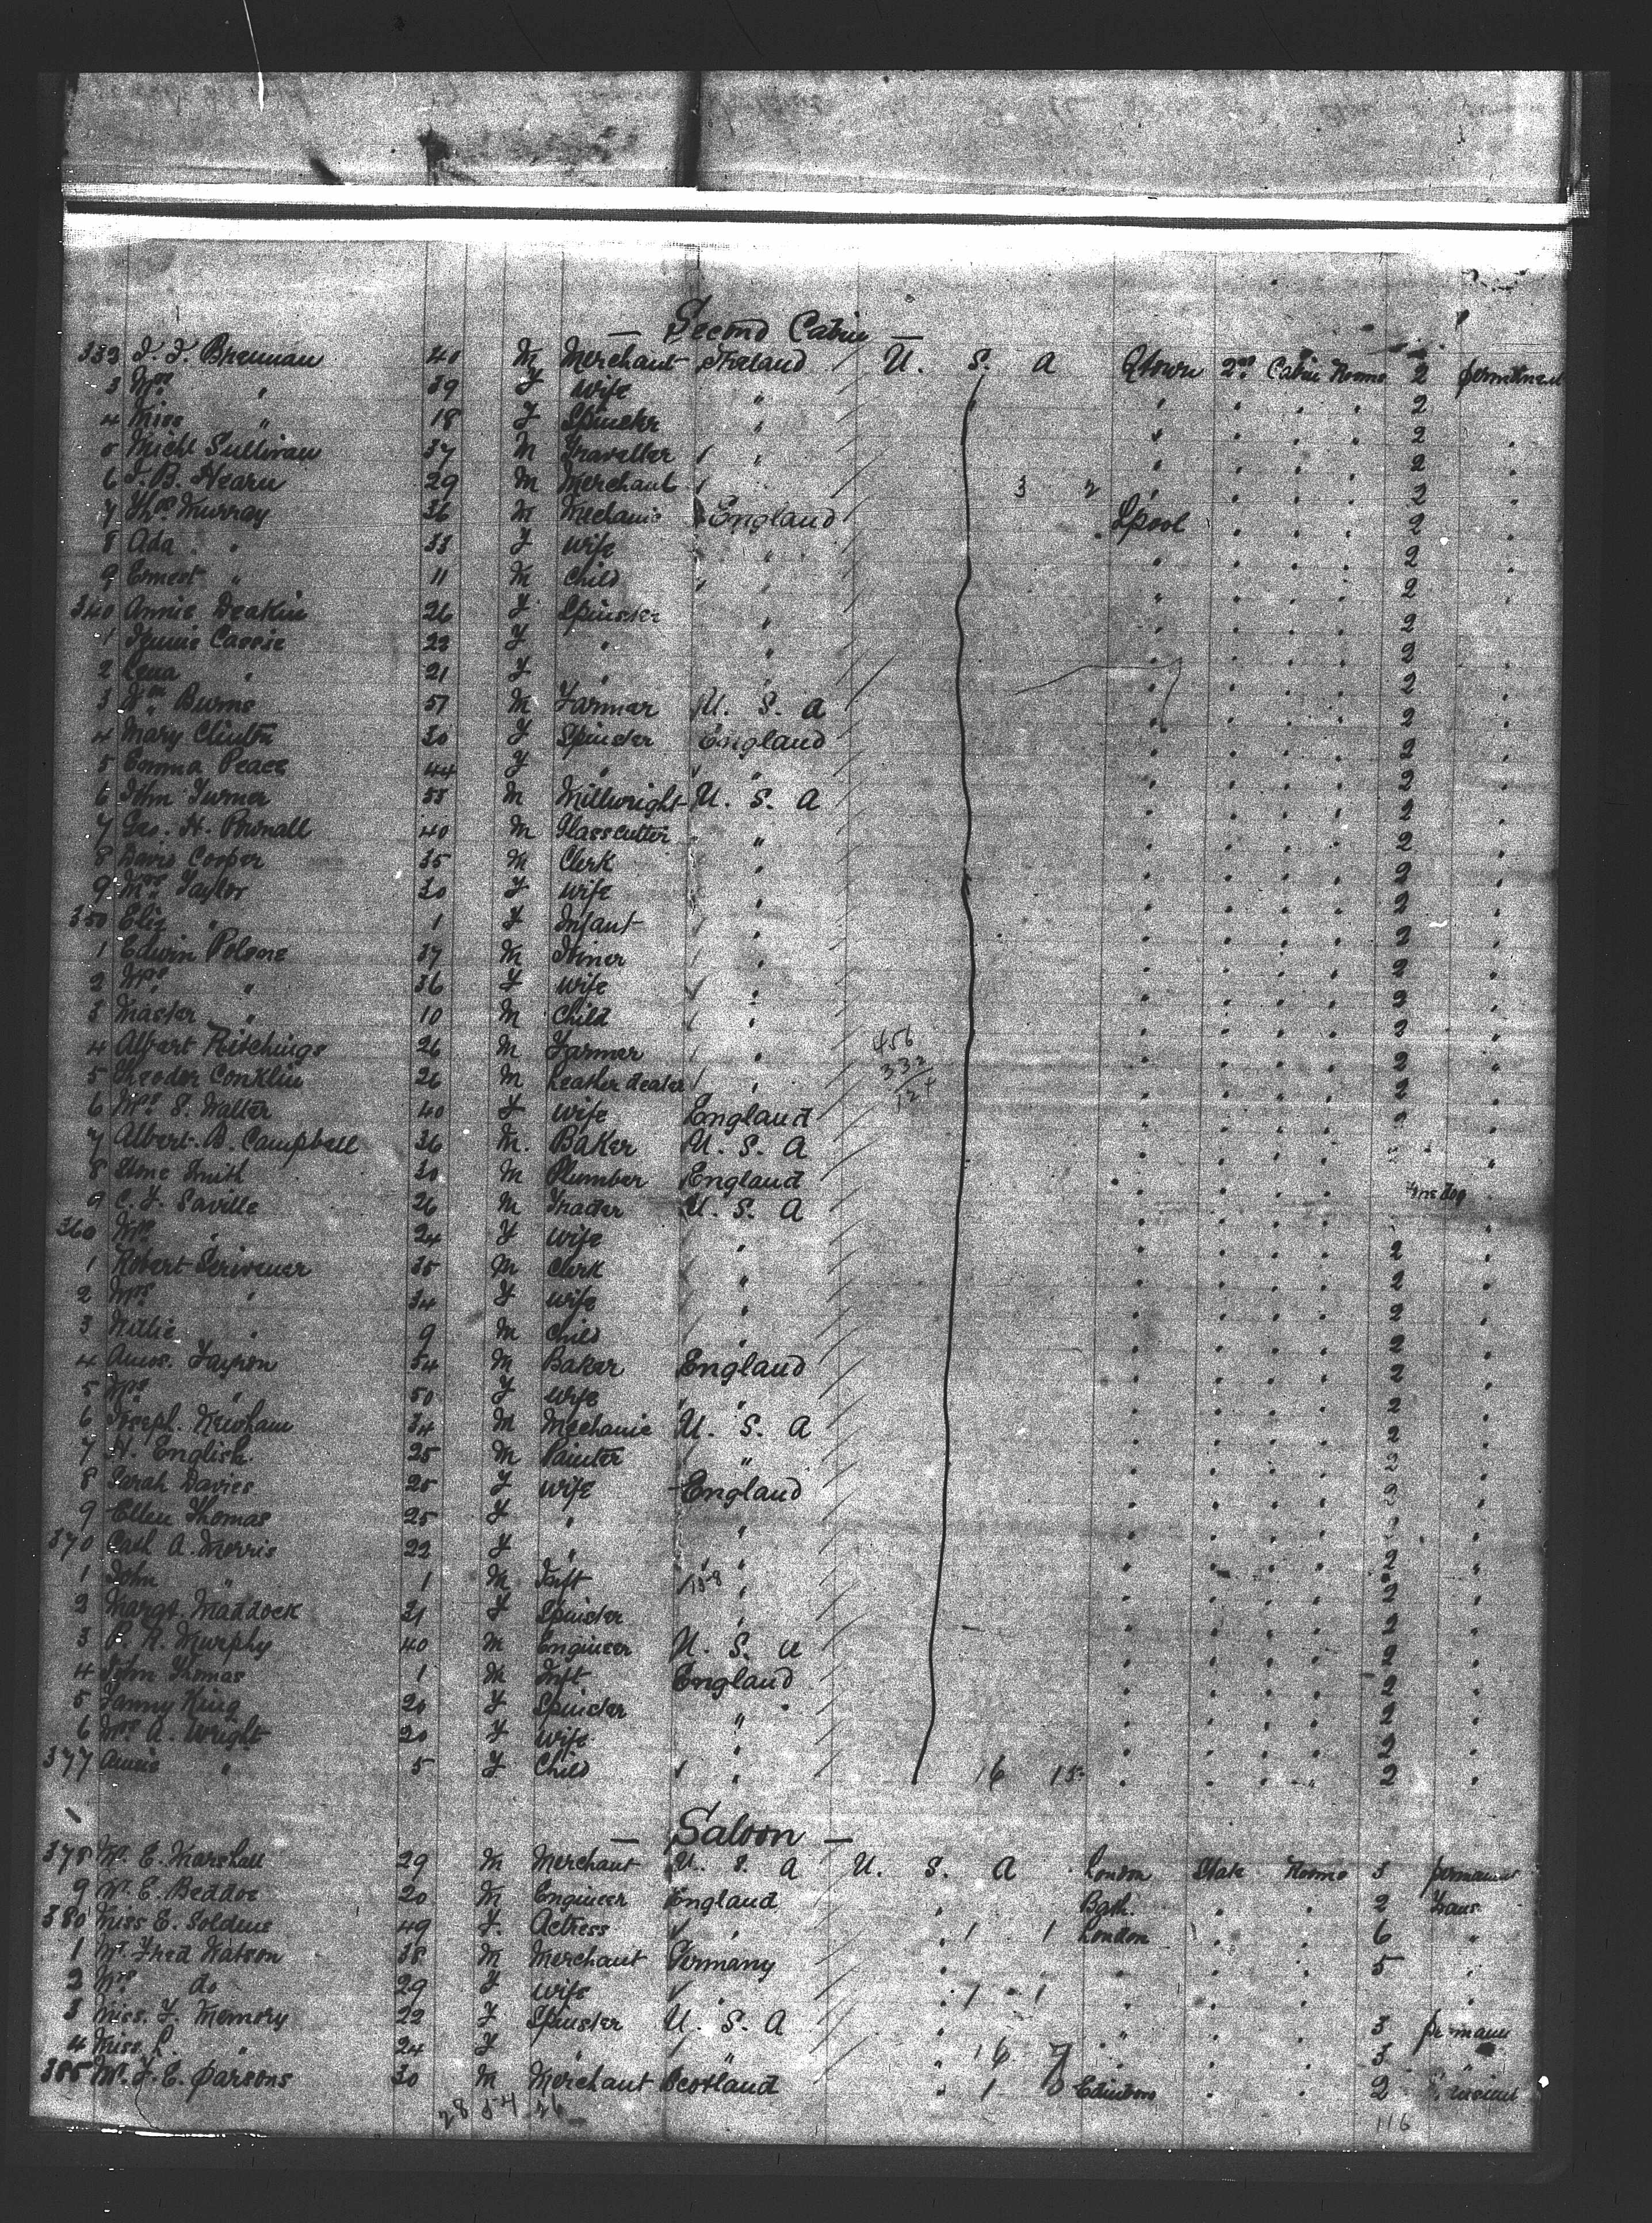 — Second Cabin —
333 J. J. Brennan 40 M Merchant Ireland U. S. A Qtown 2nd Cabin Rooms 2
3 Mrs " 39 F Wife " " " " " 2 "
4 Miss " 18 F Spinster " " " " " 2 "
5 Michl Sullivan 37 M Traveller " " " " " 2 "
6 J. B. Hearn 29 M Merchant 3 2 " " " " 2 "
7 Thos Murray 36 M Mechanic England Lpool " " " 2 "
8 Ada " 33 F Wife " " " " " 2 "
9 Ernest " 11 M Child " " " " " 2 "
340 Annie Deakin 26 F Spinster " " " " " 2 "
1 Jennie Cassie 22 F " " " " " " 2 "
2 Lena " 21 F " " " " " 2 "
3 Wm Burns 57 M Farmer U. S. A " " " " 2 "
4 Mary Clinton 30 F Spinster England " " " " 2 "
5 Emma Peace 44 F " " " " " " 2 "
6 John Turner 55 M Millwright U. S. A " " " " 2 "
7 Geo. H. Pownall 40 M Glasscutter " " " " " 2 "
8 David Cooper 35 M Clerk " " " " " 2 "
9 Mrs Taylor 30 F Wife " " " " " 2 "
350 Eliz " 1 F Infant " " " " " 2 "
1 Edwin Polsone 37 M Miner " " " " " 2 "
2 Mrs " 36 F Wife " " " " " 2 "
3 Master " 10 M Child " " " " " 2 "
4 Albert Ritchings 26 M Farmer " 456 " " " " 2 "
5 Theoder Conklin 26 M Leather dealer " 332 " " " " 2 "
6 Mrs S. Walter 40 F Wife England 124 " " " " 2 "
7 Albert B. Campbell 36 M. Baker U. S. A " " " " "
8 Smith 30 M Plumber England " " " " One dog
9 C. F. Saville 26 M Trader U. S. A " " " " "
360 Mrs " 24 F Wife " " " " " 2 "
1 Robert Scrivener 35 M Clerk " " " " " 2 "
2 Mrs " 34 F Wife " " " " " 2 "
3 Nellie " 9 M Child " " " " " 2 "
4 Amos. 54 M Baker England " " " " 2 "
5 Mrs " 50 F Wife " " " " " 2 "
6 Joseph. Newham 34 M Mechanic U. S. A " " " " 2 "
7 H. English. 25 M Painter " " " " " 2 "
8 Sarah Davies 25 F Wife England " " " " 2 "
9 Ellen Thomas 25 F " " " " " " 2 "
370 Cath A. Morris 22 F " " " " " " 2 "
1 John " 1 M Inft " " " " " 2 "
2 Margt. Maddock 21 F Spinster " " " " " 2 "
3 P. H. Murphy 40 M Engineer U. S. A " " " " 2 "
4 John Thomas 1 M Inft England " " " " 2 "
5 Fanny King 20 F Spinster " " " " " 2 "
6 Mrs A. Wright 20 F Wife " " " " " 2 "
377 Annie " 5 F Child " 16 15 " " " " 2 "
— Saloon —
378 Mr. E. Marshall 29 M Merchant U. S. A U. S. A London State Rooms 3
9 Mr. E. Beddoe 20 M Engineer England " Bath. " " 2 Trans
380 Miss E. Soldene 49 F. Actress " " 1 1 London " " 6 "
1 Mr Fred Watson 38 M Merchant Germany " " " " 5 "
2 Mrs do 29 F Wife " " 1 1 " " " "
3 Miss. F. Memory 22 F Spinster U. S. A " " " " 3
4 Miss. L. " 24 F " " " 16 7 " " " 3 "
385 Mr. F. E. Parsons 30 M Merchant Scotland " 1 " " 2
28 54 26 116